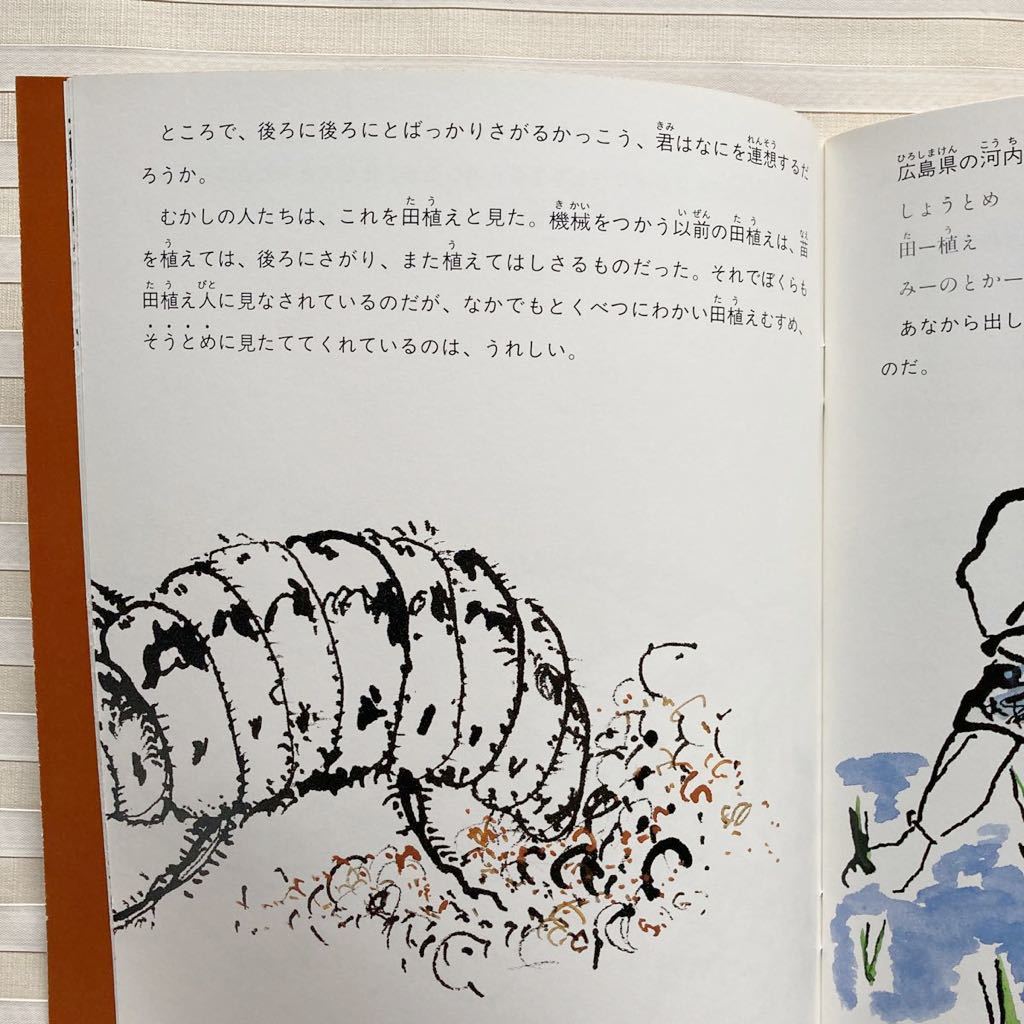 ところで、後ろに後ろにとばっかりさがるかっこう、君はなにを連想するだ
ろうか。
むかしの人たちは、これを田植えと見た。機械をつかう以前の田植えは、苗
を植えては、後ろにさがり、また植えてはしさるものだった。それでぼくらも
田植え人に見なされているのだが、なかでもとくべつにわかい田植えむすめ、
そうとめに見たててくれているのは、うれしい。
広島県の河内
しょうとめ
田ー植え
みーのとかー
あなから出し
のだ。